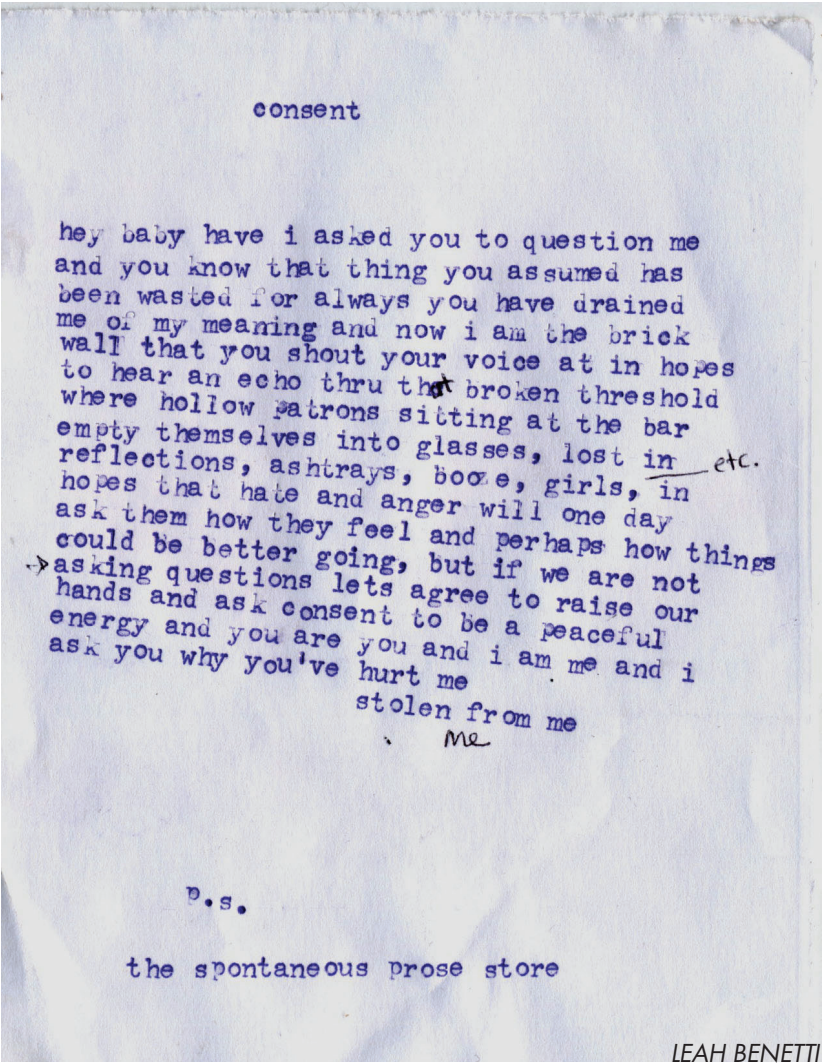 consent
hey baby have i asked you to question me
and you know that thing you assumed has
been wasted for always you have drained
me of my meaning and now i am the brick
wall that you shout your voice at in hopes
to hear an echo thru that broken threshold
where hollow patrons sitting at the bar
empty themselves into glasses, lost in
reflections, ashtrays, booze, girls, in etc.
hopes that hate and anger will one day
ask them how they feel and perhaps how things
could be better going, but if we are not
asking questions lets agree to raise our
hands and ask consent to be a peaceful
energy and you are you and i am me and i
ask you why you've hurt me
stolen from me
me
p.s.
the spontaneous prose store
LEAH BENETTI